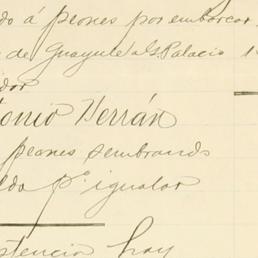 do á peones por embarcar
de Guayule a G. Palacio 1
dor
onio Herrán
peones sembrando
lda p.ª igualar
stencia hoy